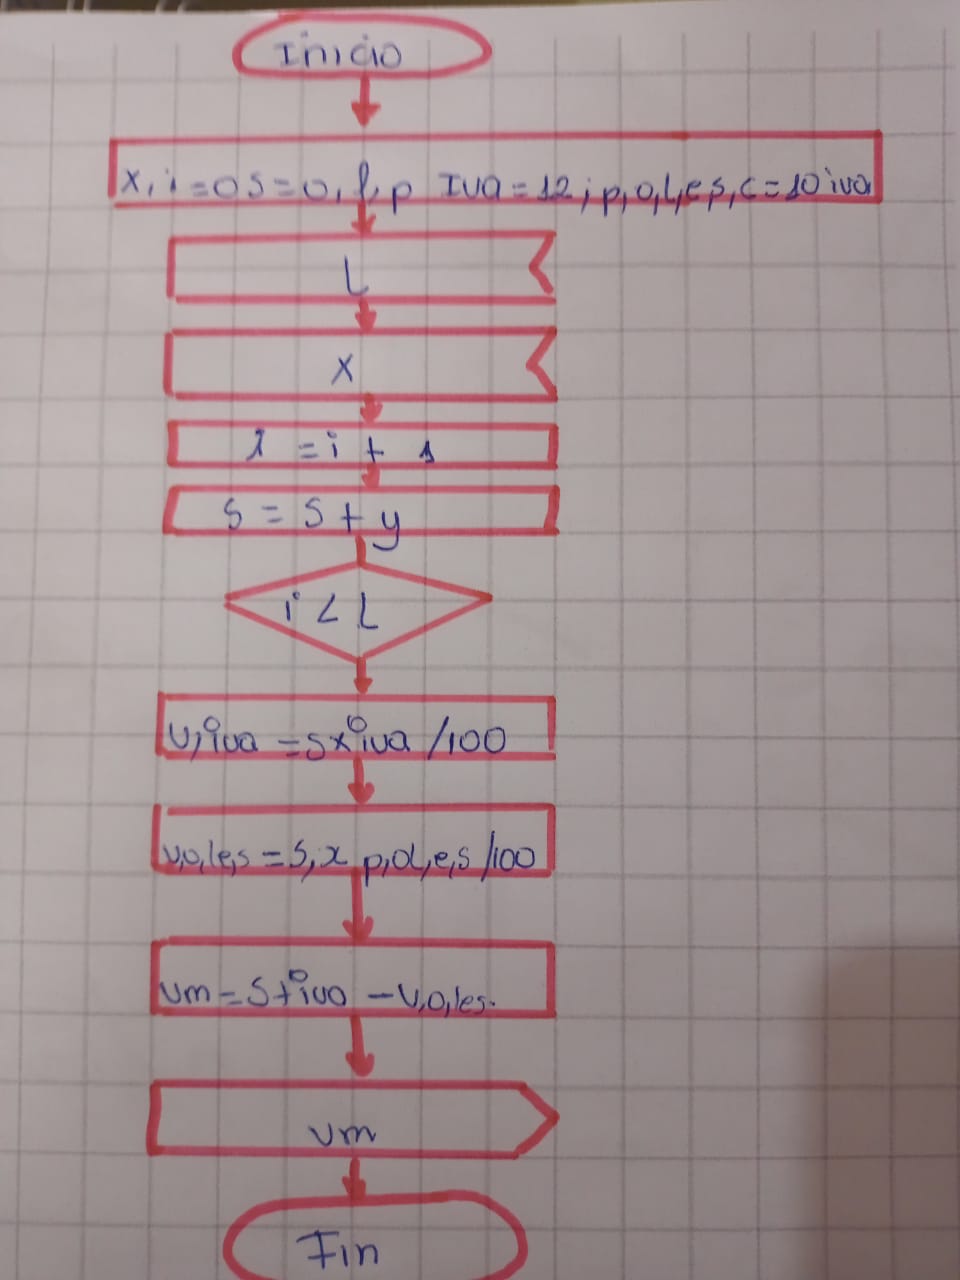 Inicio
x, i=0 s=0, l, p Iva=12; p,o,l,es,c=10 iva
L
x
i = i + 1
s = s + y
i < L
v,iva = s x iva /100
v,o,le,s = s, x p,o,l,e,s /100
vm = s + iva - v,o,les.
vm
Fin